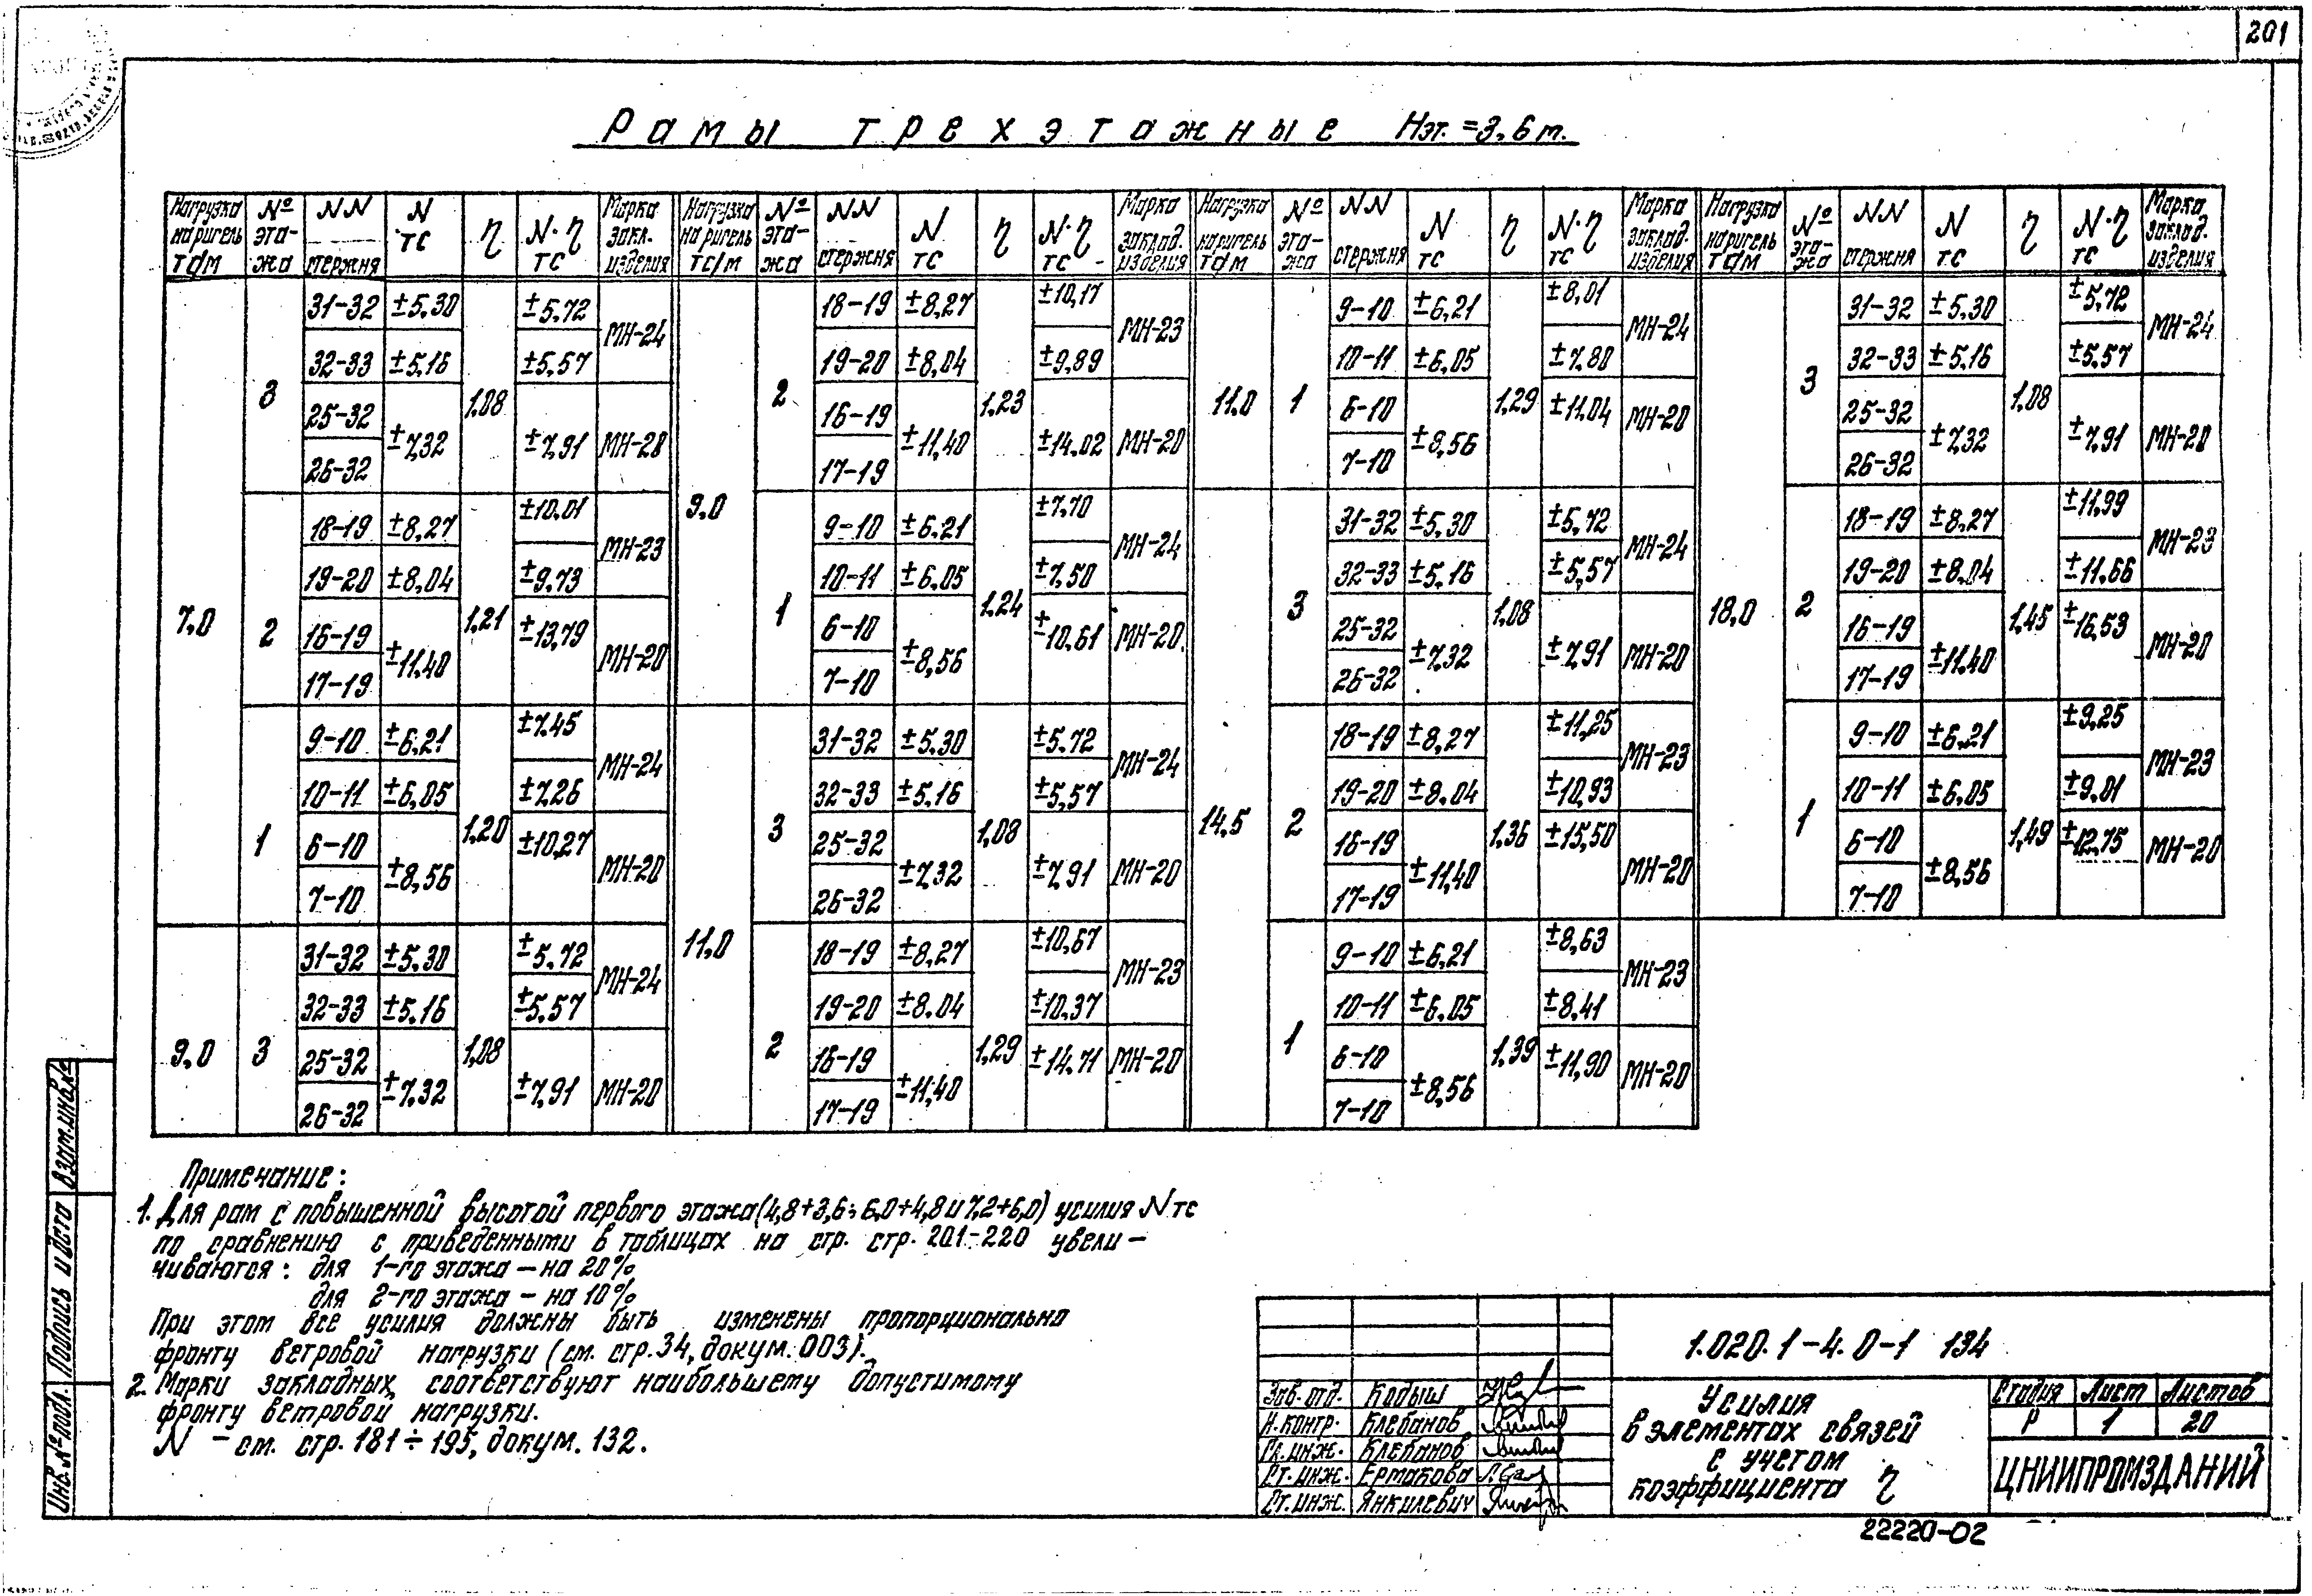 201
Рамы трехэтажные Нэт.=3,6м.
Нагрузка на ригель тс/м | №№ этажа | NN стержня | N тс | η | N·η тс | Марка закл. изделия
7,0 | 3 | 31-32 | ±5,30 | 1,08 | ±5,72 | МН-24
32-33 | ±5,16 | ±5,57
25-32 | ±7,32 | ±7,91 | МН-28
26-32
2 | 18-19 | ±8,27 | 1,21 | ±10,01 | МН-23
19-20 | ±8,04 | ±9,73
16-19 | ±11,40 | ±13,79 | МН-20
17-19
1 | 9-10 | ±6,21 | 1,20 | ±7,45 | МН-24
10-11 | ±6,05 | ±7,26
6-10 | ±8,56 | ±10,27 | МН-20
7-10
9,0 | 3 | 31-32 | ±5,30 | 1,08 | ±5,72 | МН-24
32-33 | ±5,16 | ±5,57
25-32 | ±7,32 | ±7,91 | МН-20
26-32
Нагрузка на ригель тс/м | № этажа | NN стержня | N тс | η | N·η тс | Марка заклад. изделия
9,0 | 2 | 18-19 | ±8,27 | 1,23 | ±10,17 | МН-23
19-20 | ±8,04 | ±9,89
16-19 | ±11,40 | ±14,02 | МН-20
17-19
1 | 9-10 | ±6,21 | 1,24 | ±7,70 | МН-24
10-11 | ±6,05 | ±7,50
6-10 | ±8,56 | ±10,61 | МН-20
7-10
11,0 | 3 | 31-32 | ±5,30 | 1,08 | ±5,72 | МН-24
32-33 | ±5,16 | ±5,57
25-32 | ±7,32 | ±7,91 | МН-20
26-32
2 | 18-19 | ±8,27 | 1,29 | ±10,67 | МН-23
19-20 | ±8,04 | ±10,37
16-19 | ±11,40 | ±14,71 | МН-20
17-19
Нагрузка на ригель тс/м | № этажа | NN стержня | N тс | η | N·η тс | Марка заклад. изделия
11,0 | 1 | 9-10 | ±6,21 | 1,29 | ±8,01 | МН-24
10-11 | ±6,05 | ±7,80
6-10 | ±8,56 | ±11,04 | МН-20
7-10
14,5 | 3 | 31-32 | ±5,30 | 1,08 | ±5,72 | МН-24
32-33 | ±5,16 | ±5,57
25-32 | ±7,32 | ±7,91 | МН-20
26-32
2 | 18-19 | ±8,27 | 1,36 | ±11,25 | МН-23
19-20 | ±8,04 | ±10,93
16-19 | ±11,40 | ±15,50 | МН-20
17-19
1 | 9-10 | ±6,21 | 1,39 | ±8,63 | МН-23
10-11 | ±6,05 | ±8,41
6-10 | ±8,56 | ±11,90 | МН-20
7-10
Нагрузка на ригель тс/м | № этажа | NN стержня | N тс | η | N·η тс | Марка заклад. изделия
18,0 | 3 | 31-32 | ±5,30 | 1,08 | ±5,72 | МН-24
32-33 | ±5,16 | ±5,57
25-32 | ±7,32 | ±7,91 | МН-20
26-32
2 | 18-19 | ±8,27 | 1,45 | ±11,99 | МН-23
19-20 | ±8,04 | ±11,66
16-19 | ±11,40 | ±16,53 | МН-20
17-19
1 | 9-10 | ±6,21 | 1,49 | ±9,25 | МН-23
10-11 | ±6,05 | ±9,01
6-10 | ±8,56 | ±12,75 | МН-20
7-10
Примечание:
1. Для рам с повышенной высотой первого этажа (4,8+3,6; 6,0+4,8 и 7,2+6,0) усилия N тс
по сравнению с приведенными в таблицах на стр. стр. 201-220 увели-
чиваются: для 1-го этажа – на 20%
для 2-го этажа – на 10%
При этом все усилия должны быть изменены пропорционально
фронту ветровой нагрузки (см. стр. 34, докум. 003).
2. Марки закладных соответствуют наибольшему допустимому
фронту ветровой нагрузки.
N – см. стр. 181÷195, докум. 132.
Инв.№ подл. Подпись и дата Взам.инв.№
1.020.1-4.0-1 134
Зав. отд. Кодыш
Н. контр. Клебанов
Гл. инж. Клебанов
Ст. инж. Ермакова
Ст. инж. Янкилевич
Усилия
в элементах связей
с учетом
коэффициента η
Стадия Лист Листов
Р 1 20
ЦНИИПРОМЗДАНИЙ
22220-02